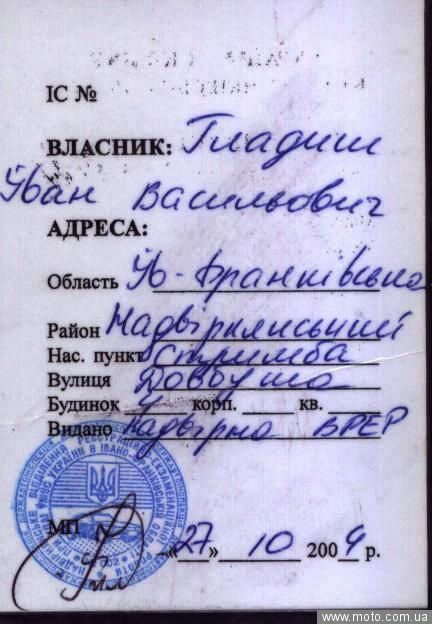 ІС №
ВЛАСНИК: Гладиш
Іван Васильович
АДРЕСА:
Область Ів-Франківська
Район Надвірнянський
Нас. пункт Стримба
Вулиця Довбуша
Будинок корп. кв.
Видано Надвірна ВРЕР
МП
«27» 10 2004 р.
www.moto.com.ua